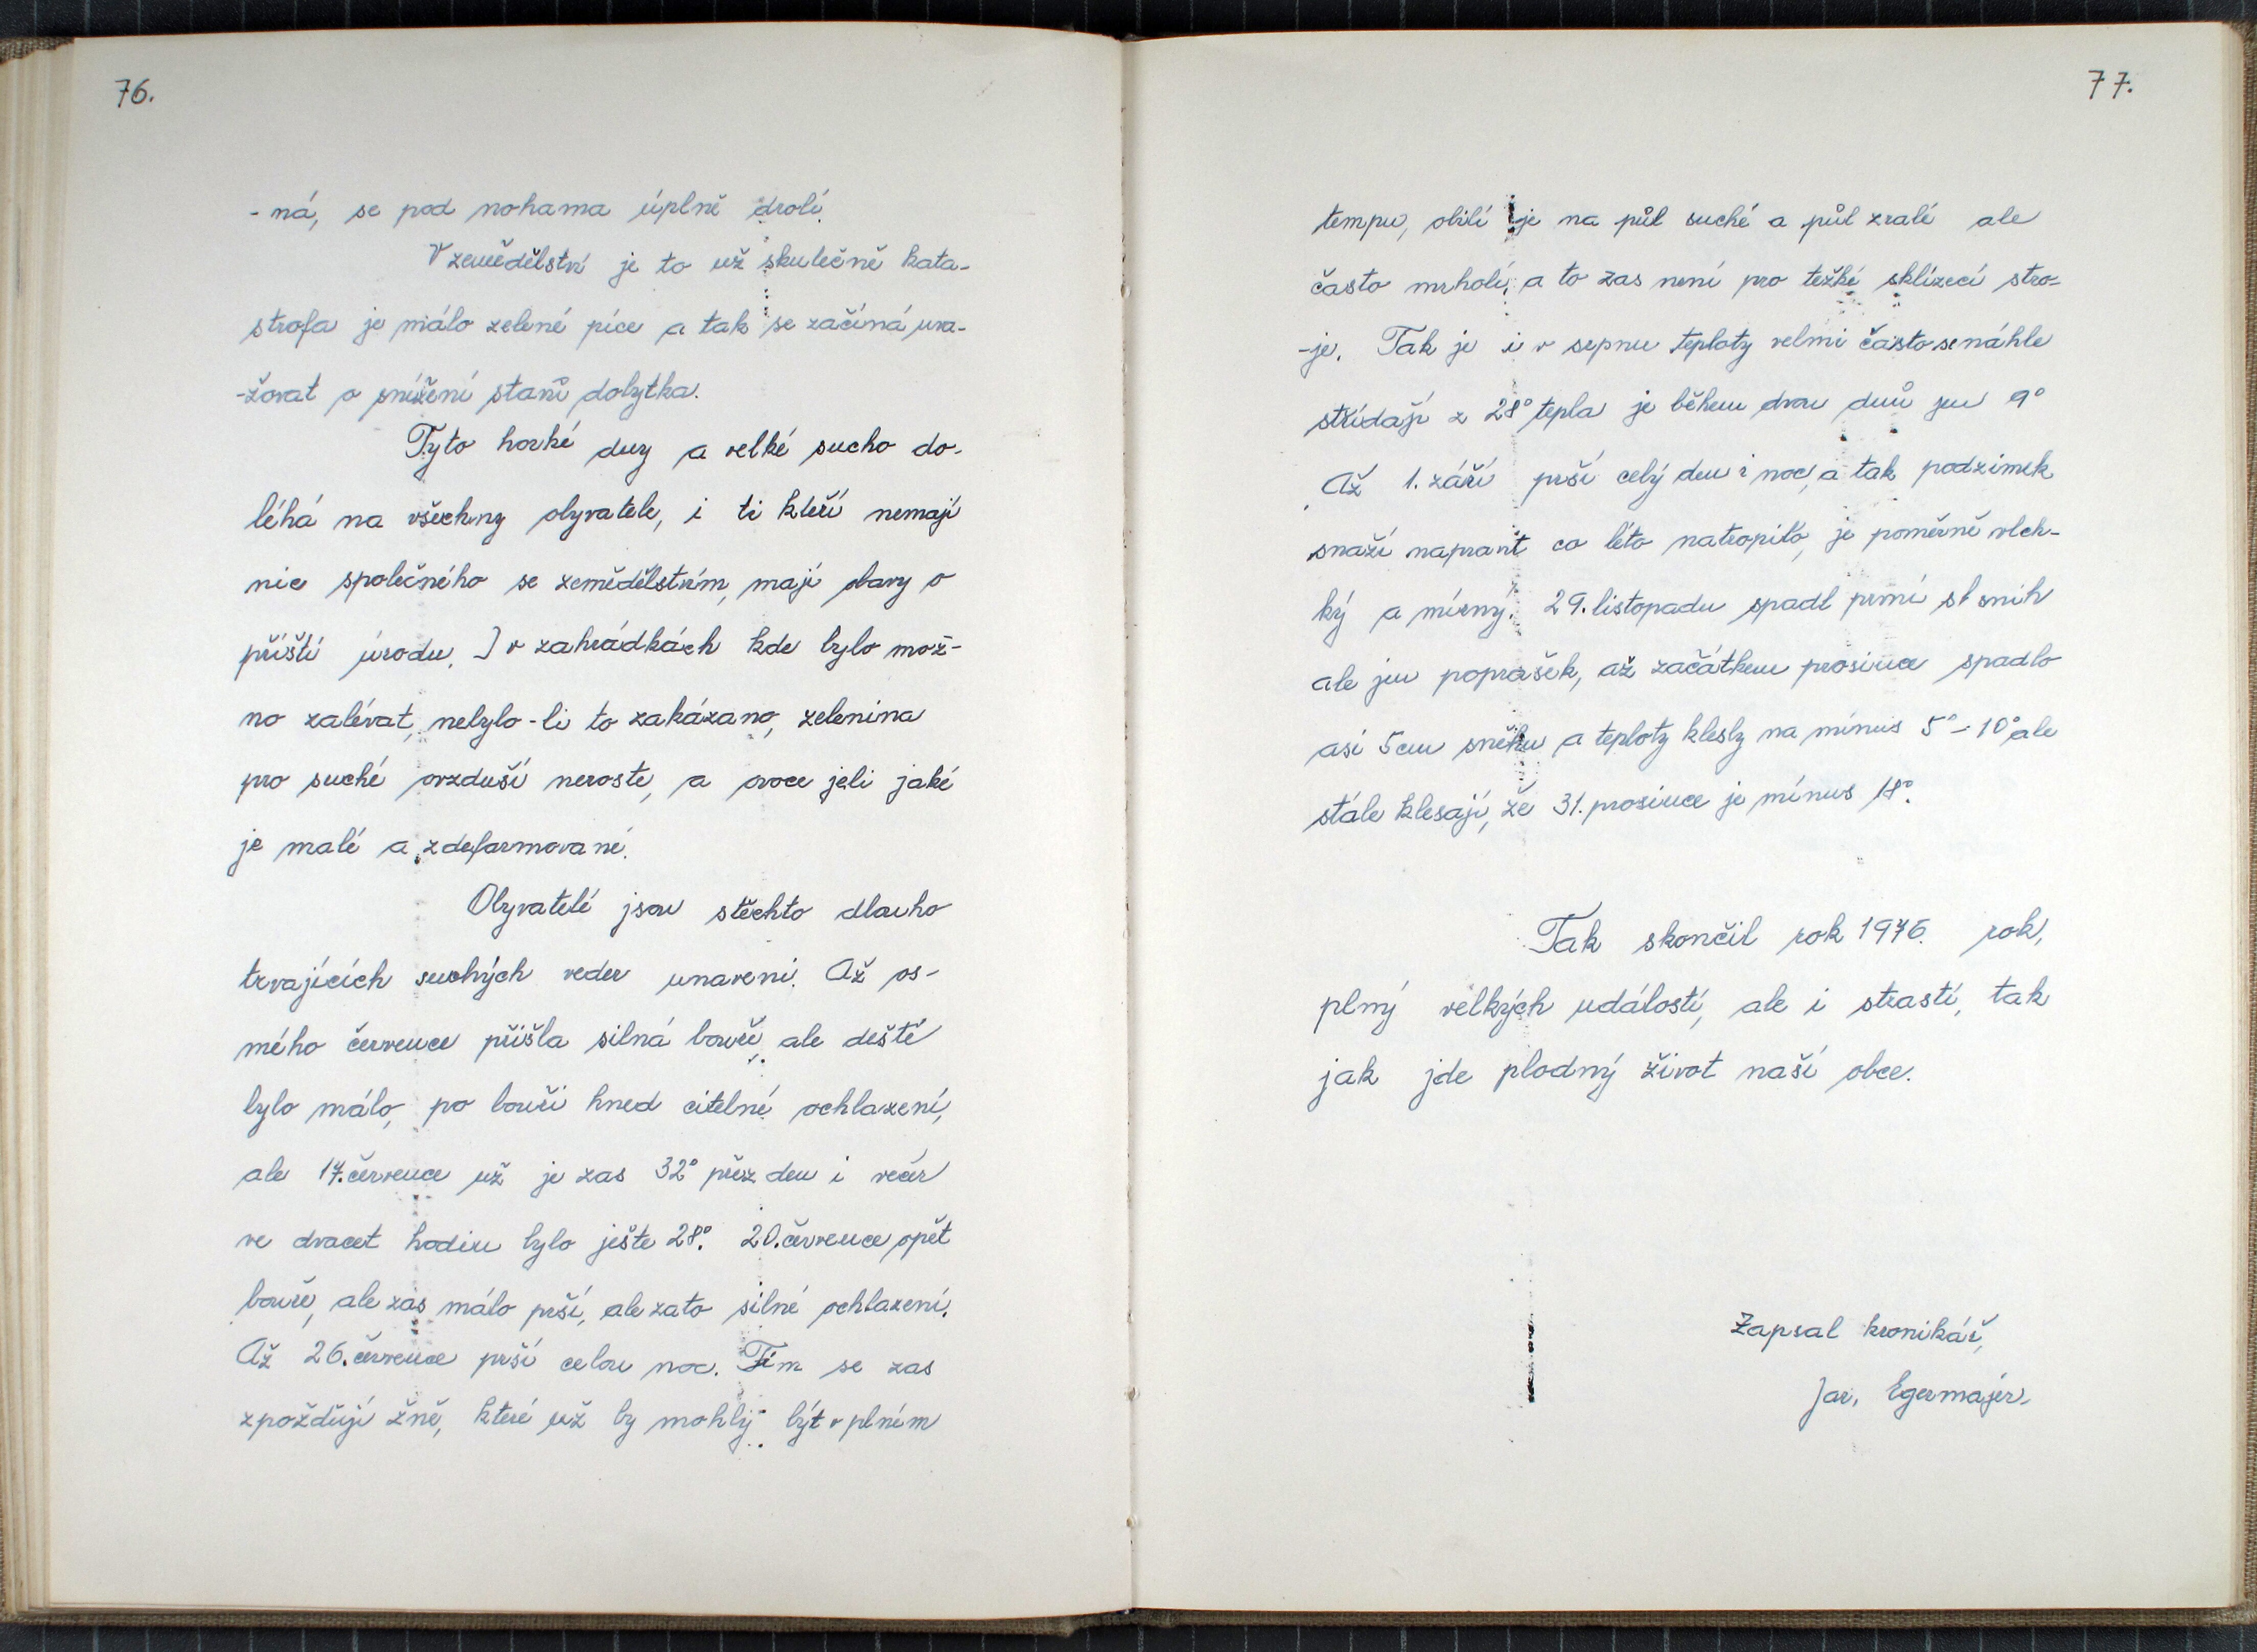 76.
-ná, se pod nohama úplně drolí.
V zemědělství je to už skutečně kata-
strofa je málo zelené píce a tak se začíná uva-
-žovat o snížení stavů dobytka.
Tyto horké dny a velké sucho do-
léhá na všechny obyvatele, i ti kteří nemají
nic společného se zemědělstvím, mají obavy o
příští úrodu. I v zahrádkách kde bylo mož-
no zalévat, nebylo-li to zakázano, zelenina
pro suché ovzduší neroste, a ovoce jeli jaké
je malé a zdeformované.
Obyvatelé jsou stěchto dlouho
trvajících suchých veder unaveni. Až os-
mého července přišla silná bouře, ale deště
bylo málo, po bouři hned citelné ochlazení,
ale 17. července už je zas 32° přez den i večer
ve dvacet hodin bylo ješte 28°. 20. července opět
bouře, ale zas málo prší, ale zato silné ochlazení.
Až 26. července prší celou noc. Tím se zas
zpoždují žně, které už by mohly být v plném
77.
tempu, obilí je na půl suché a půl zralé ale
často mrholí, a to zas není pro težké sklízecí stro-
-je. Tak je i v srpnu teploty velmi často se náhle
střídají z 28° tepla je během dvou dnů jen 9°
Až 1. září prší celý den i noc, a tak podzimek
snaží napravit co léto natropilo, je poměrně vlch-
ký a mírný. 29. listopadu spadl první sníh
ale jen poprašek, až začátkem prosince spadlo
asi 5 cm sněhu a teploty klesly na mínus 5° - 10° ale
stále klesají, že 31. prosince je mínus 18°.
Tak skončil rok 1976. rok,
plný velkých událostí, ale i strastí, tak
jak jde plodný život naší obce.
Zapsal kronikář,
Jar. Egermajer.